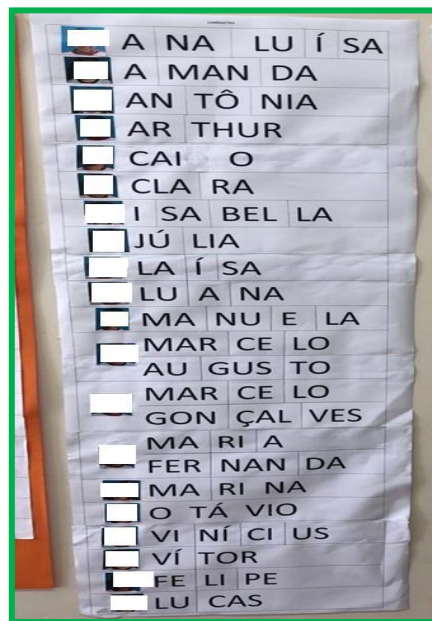 A NA LU Í SA
A MAN DA
AN TÔ NIA
AR THUR
CAI O
CLA RA
I SA BEL LA
JÚ LIA
LA Í SA
LU A NA
MA NU E LA
MAR CE LO
AU GUS TO
MAR CE LO
GON ÇAL VES
MA RI A
FER NAN DA
MA RI NA
O TÁ VIO
VI NÍ CI US
VÍ TOR
FE LI PE
LU CAS